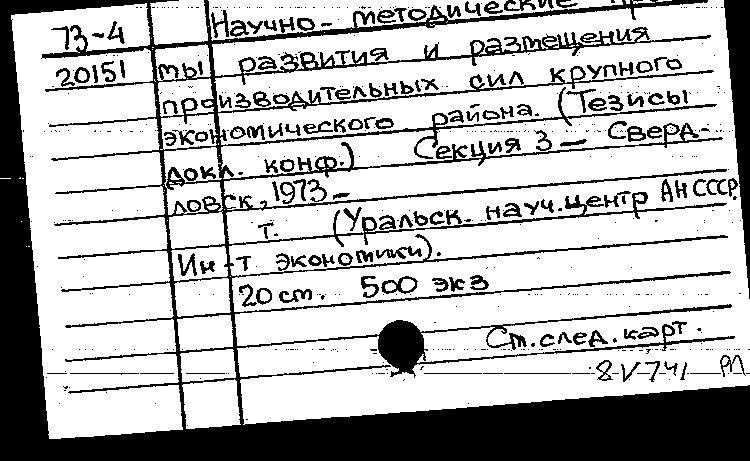 73-4 Научно-методические
20151 мы развития и размещения
производительных сил крупного
экономического района. (Тезисы
докл. конф.) Секция 3 — Сверд-
ловск, 1973 –
т. (Уральск. науч. центр АН СССР.
Ин-т экономики).
20 ст. 500 экз
Ст. след. карт.
8 V 741 РП